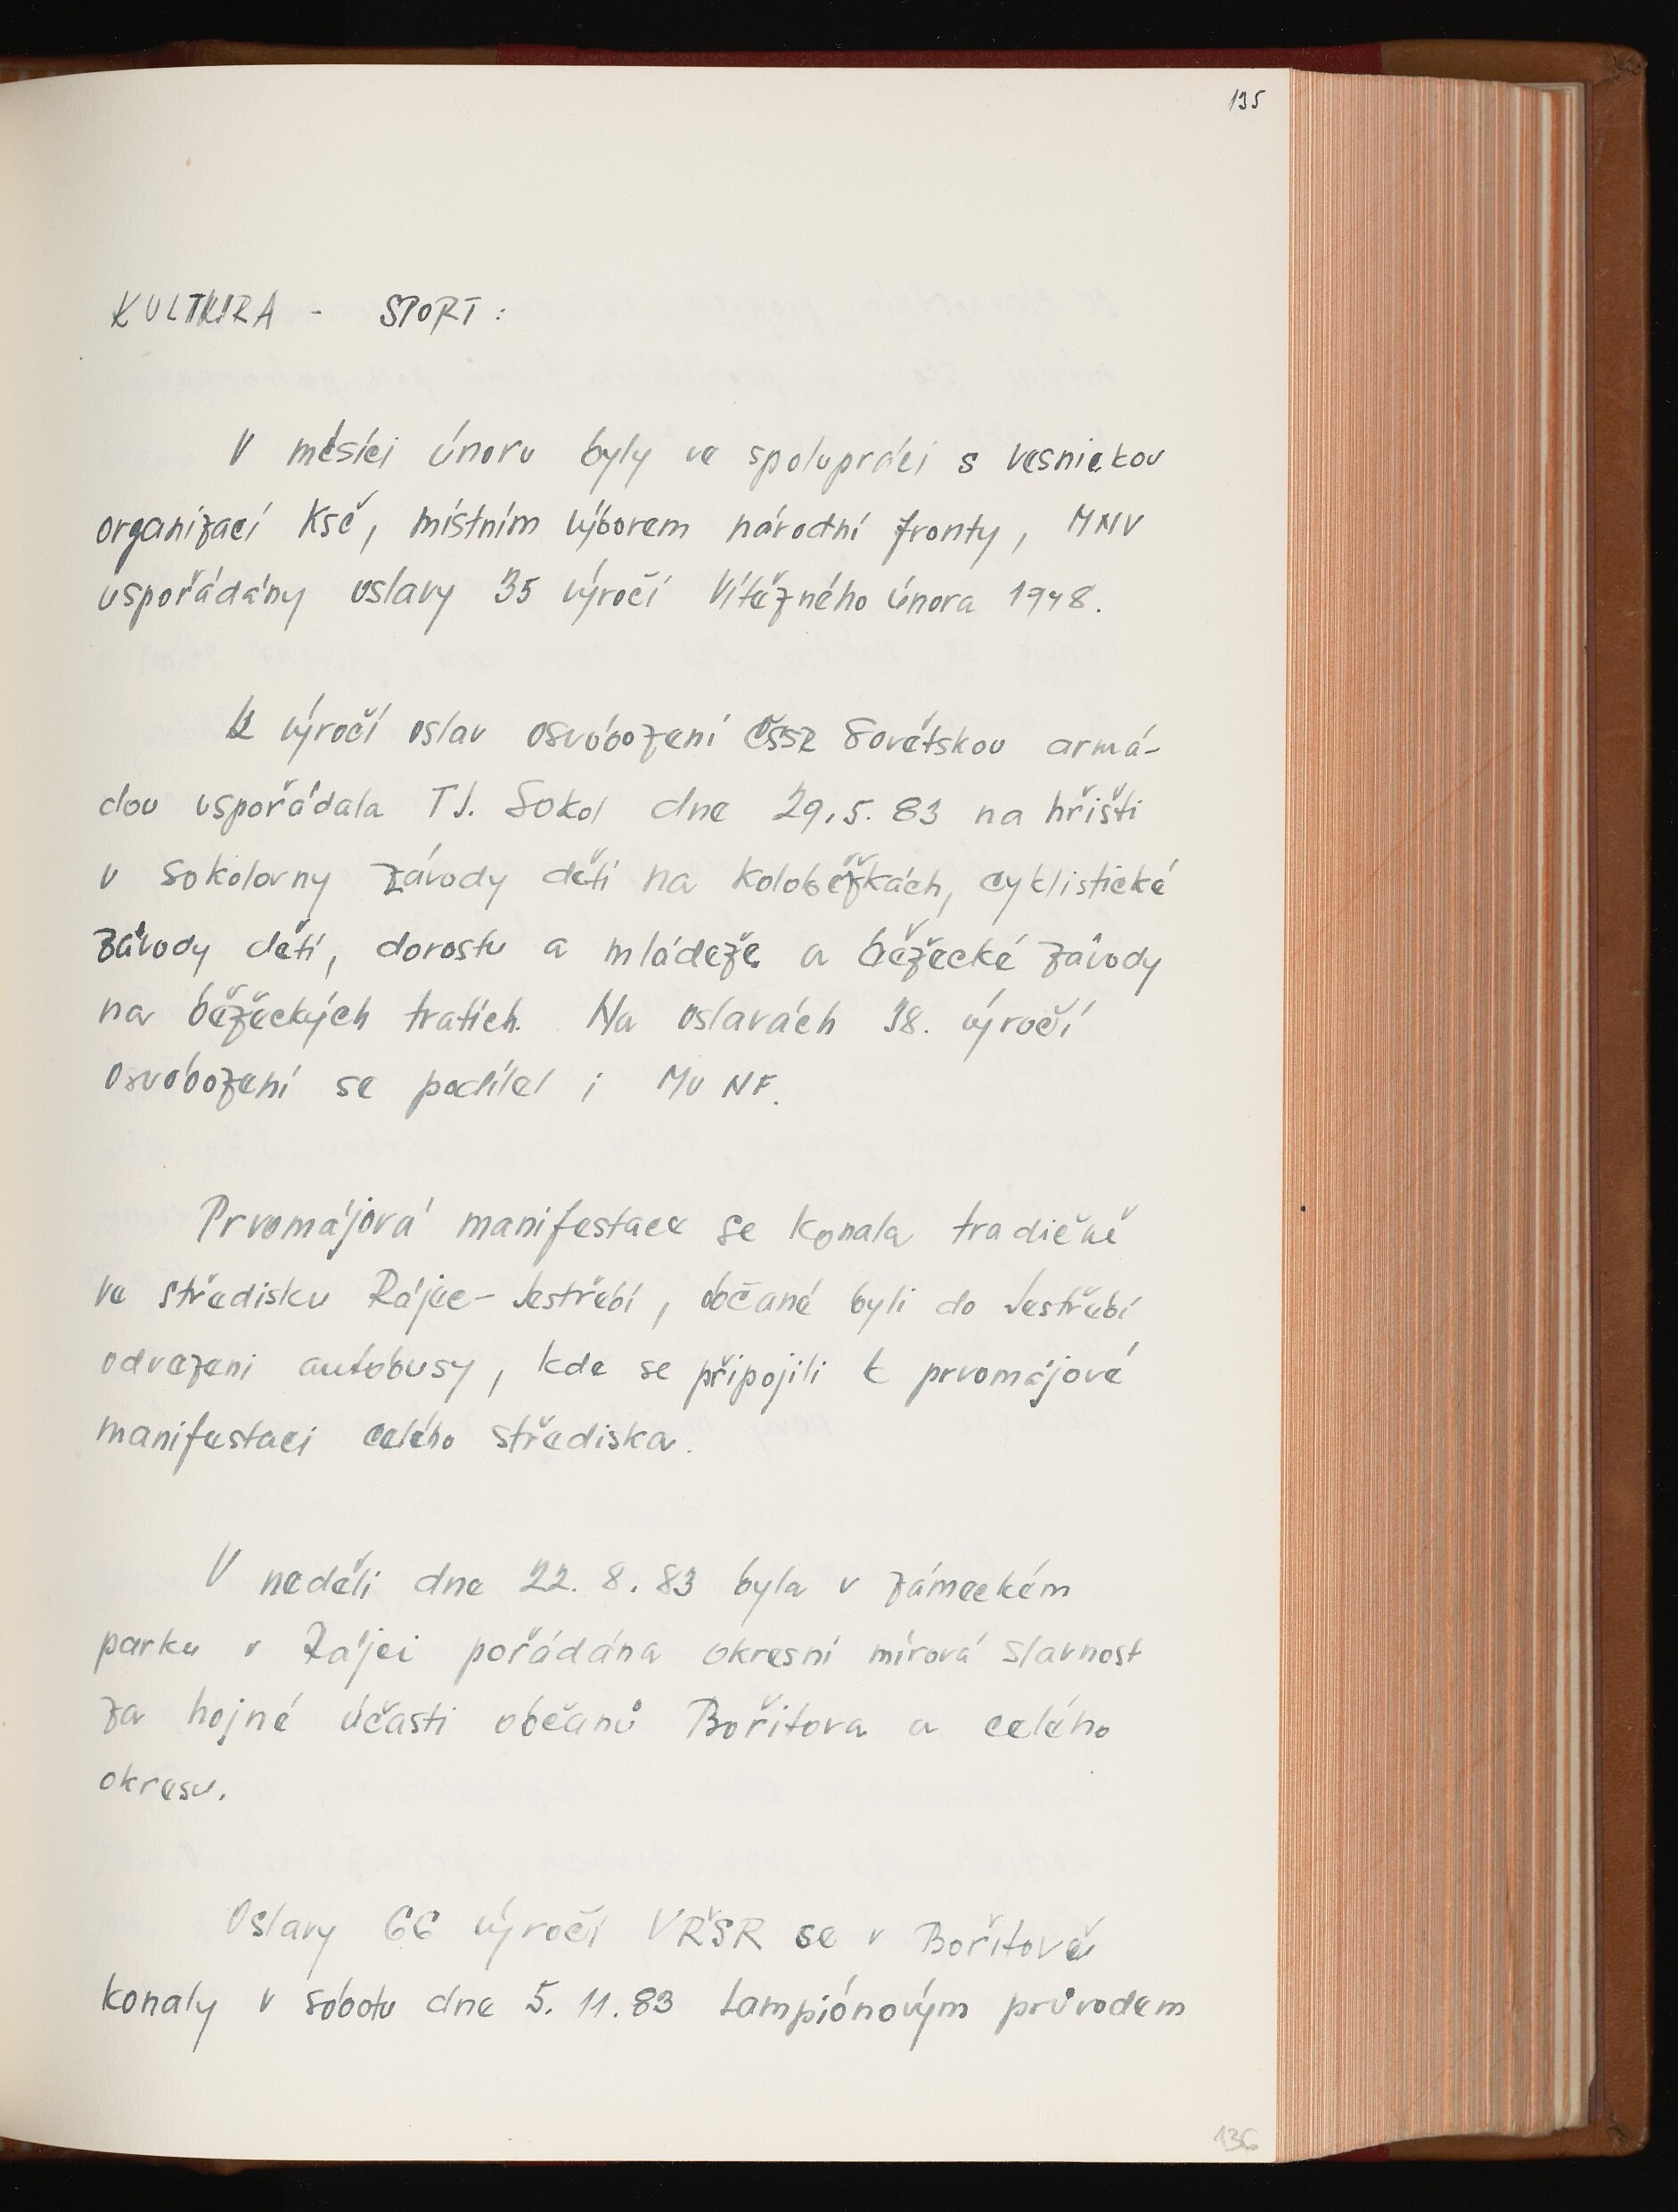 135
KULTURA - SPORT:
V měsíci únoru byly ve spolupráci s vesnickou
organizací KSČ, místním výborem národní fronty, MNV
uspořádány oslavy 35 výročí Vítězného února 1948.
K výročí oslav osvobození ČSSR Sovětskou armá-
dou uspořádala TJ. Sokol dne 29.5.83 na hřišti
u Sokolovny závody dětí na koloběžkách, cyklistické
závody dětí, dorostu a mládeže a běžecké závody
na běžeckých tratích. Na oslavách 38. výročí
osvobození se podílel i MV NF.
Prvomájová manifestace se konala tradičně
ve středisku Rájec-Jestřebí, občané byli do Jestřebí
odvezeni autobusy, kde se připojili k prvomájové
manifestaci celého střediska.
V neděli dne 22. 8. 83 byla v zámeckém
parku v Rájci pořádána okresní mírová slavnost
za hojné účasti občanů Bořitova a celého
okresu.
Oslavy 66 výročí VŘSR se v Bořitově
konaly v sobotu dne 5. 11. 83 Lampiónovým průvodem
136